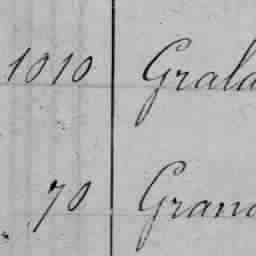 1010 Grala
70 Grand